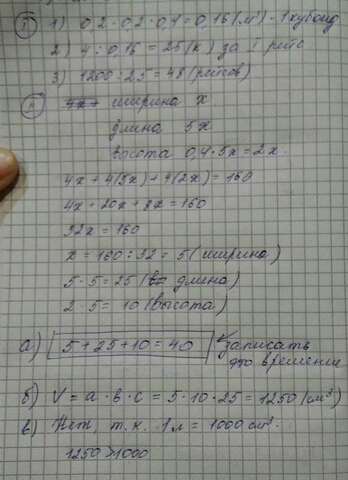 5) 1) 0,2 · 0,2 · 0,4 = 0,16 (м³) - 1 кубоид
2) 4 : 0,16 = 25 (к) за 1 рейс
3) 1200 : 25 = 48 (рейсов)
ширина x
длина 5x
высота 0,4 · 5x = 2x
4x + 4(5x) + 4(2x) = 160
4x + 20x + 8x = 160
32x = 160
x = 160 : 32 = 5 (ширина)
5 · 5 = 25 (длина)
2 · 5 = 10 (высота)
а) 5 + 25 + 10 = 40 записать
это времение
б) V = a · b · c = 5 · 10 · 25 = 1250 (см³)
в) Нет, т.к. 1л = 1000 см³.
1250 > 1000